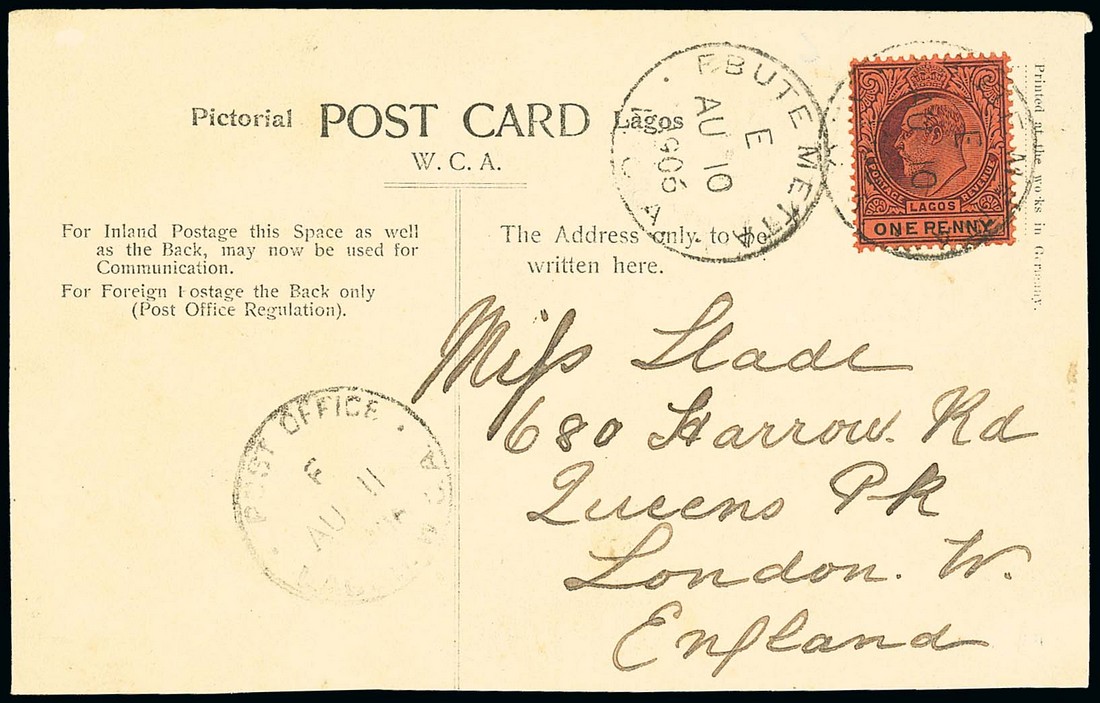 Pictorial POST CARD Lagos
W. C. A.
For Inland Postage this Space as well
as the Back, may now be used for
Communication.
For Foreign Postage the Back only
(Post Office Regulation).
The Address only to be
written here.
EBUTE METTA
E
AU 10
1906
W. C. A.
POSTAGE LAGOS REVENUE
ONE PENNY
E
AU 10
Printed at the works in Germany.
Miss Slade
680 Harrow Rd
Queens Pk
London. W.
England
POST OFFICE
AU 11
W. C. A.